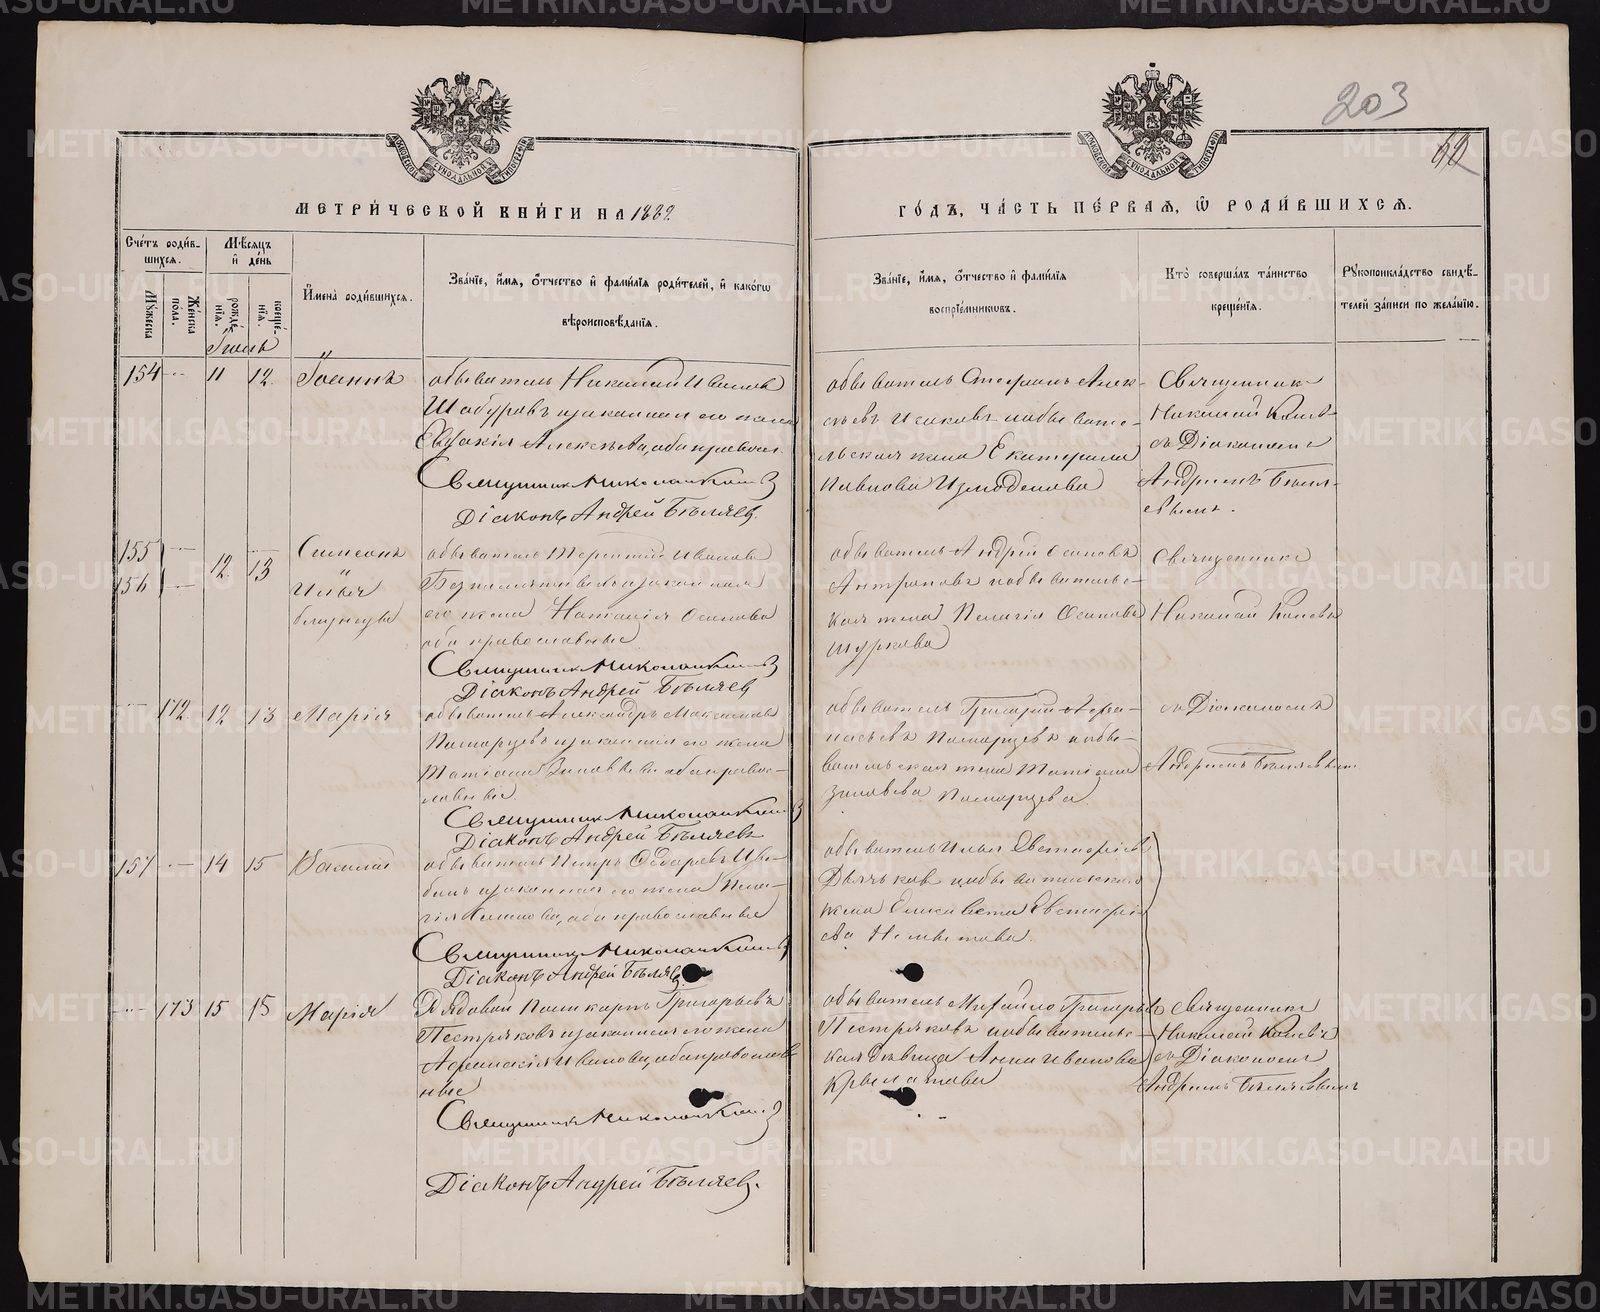 203
62
МЕТРИ́ЧЕСКОЙ КНИ́ГИ НА 1882
ГО́ДЪ, ЧА́СТЬ ПЕ́РВАЯ, Ѿ РОДИ́ВШИХСЯ.
Сче́тъ роди́в-
шихся.
Мѣ́сяцъ
и҆ де́нь
Мꙋ́жеска
пола.
Же́нска
рожде́-
нїя.
креще́-
нїя.
И҆мена̀ роди́вшихся.
Зва́нїе, и҆́мя, ѻ҆́тчество и҆ фами́лїя роди́телей, и҆ како́гѡ
вѣроисповѣ́данїя.
Зва́нїе, и҆́мя, ѻ҆́тчество и҆ фами́лїя
воспрїе́мникѡвъ.
Кто̀ соверша́лъ та́инство
креще́нїя.
Рꙋкоприкла́дство свидѣ́-
телей за́писи по жела́нїю.
Іюль
154 11 12 Іоаннъ
обыватель Николай Ивановъ
Шабуровъ и законная его жена
Евдокія Алексѣева, оба правосл.
Священникъ Николай
Діаконъ Андрей Бѣляевъ.
обыватель Стефанъ Алек-
сѣевъ Исаковъ и обывате-
льская жена Екатерина
Павлова Измоденова
Священникъ
Николай
съ Діакономъ
Андреемъ Бѣля-
евымъ.
155
156
12 13
Симеонъ
Илья
близнецы
обыватель Терентій Ивановъ
и законная
его жена Наталія Осипова
оба православные
Священникъ Николай
Діаконъ Андрей Бѣляевъ
обыватель Андрей Осиповъ
Антроповъ и обыватель-
ская жена Пелагія Осипова
Шуркова
Священникъ
Николай
172 12 13 Марія
обыватель Александръ Максимовъ
Поморцевъ и законная его жена
Татіана Зиновьева оба правос-
лавные
Священникъ Николай
Діаконъ Андрей Бѣляевъ
обыватель Григорій Афа-
насьевъ Поморцевъ и обы-
вательская жена Татіана
Зиновьева Поморцева
съ Діакономъ
Андреемъ Бѣляевымъ
157 14 15 Василій
обыватель Петръ Ѳедоровъ
и законная его жена Пела-
гія, оба православные
Священникъ Николай
Діаконъ Андрей Бѣляевъ
обыватель Илья Евстафіевъ
Дьячковъ и обывательская
жена Елисавета Евстафі-
ева
173 15 15 Марія
Рядовой Поликарпъ Григорьевъ
Пестряковъ и законная его жена
Ивановна, оба православ-
ные
Священникъ Николай
Діаконъ Андрей Бѣляевъ.
обыватель Михайло Григорьевъ
Пестряковъ и обыватель-
ская дѣвица Анна Иванова
Крылатова
Священникъ
Николай
съ Діакономъ
Андреемъ Бѣляевымъ
METRIKI.GASO-URAL.RU